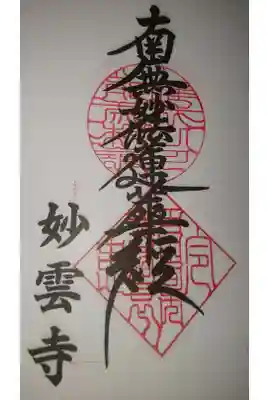 南無妙法蓮華経
妙雲寺